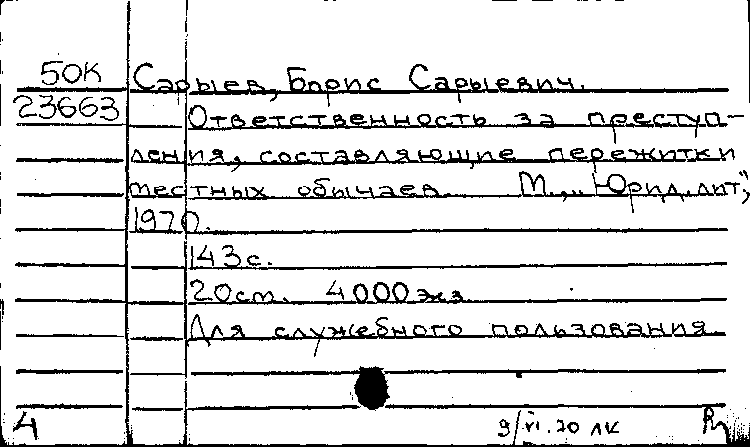 50К Сарыев, Борис Сарыевич.
23663 Ответственность за преступ-
ления, составляющие пережитки
местных обычаев. М., "Юрид. лит",
1970.
143 с.
20см. 4000 экз.
Для служебного пользования.
4 9/VI.70 ЛК